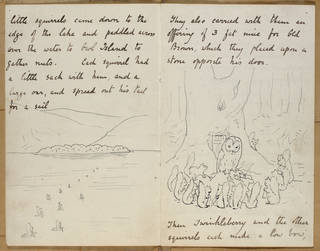 little squirrels came down to the
edge of the lake and paddled across
over the water to Owl Island to
gather nuts. Each squirrel had
a little sack with him, and a
large oar, and spread out his tail
for a sail
They also carried with them an
offering of 3 fat mice for Old
Brown, which they placed upon a
stone opposite his door.
Then Twinkleberry and the other
squirrels each made a low bow,